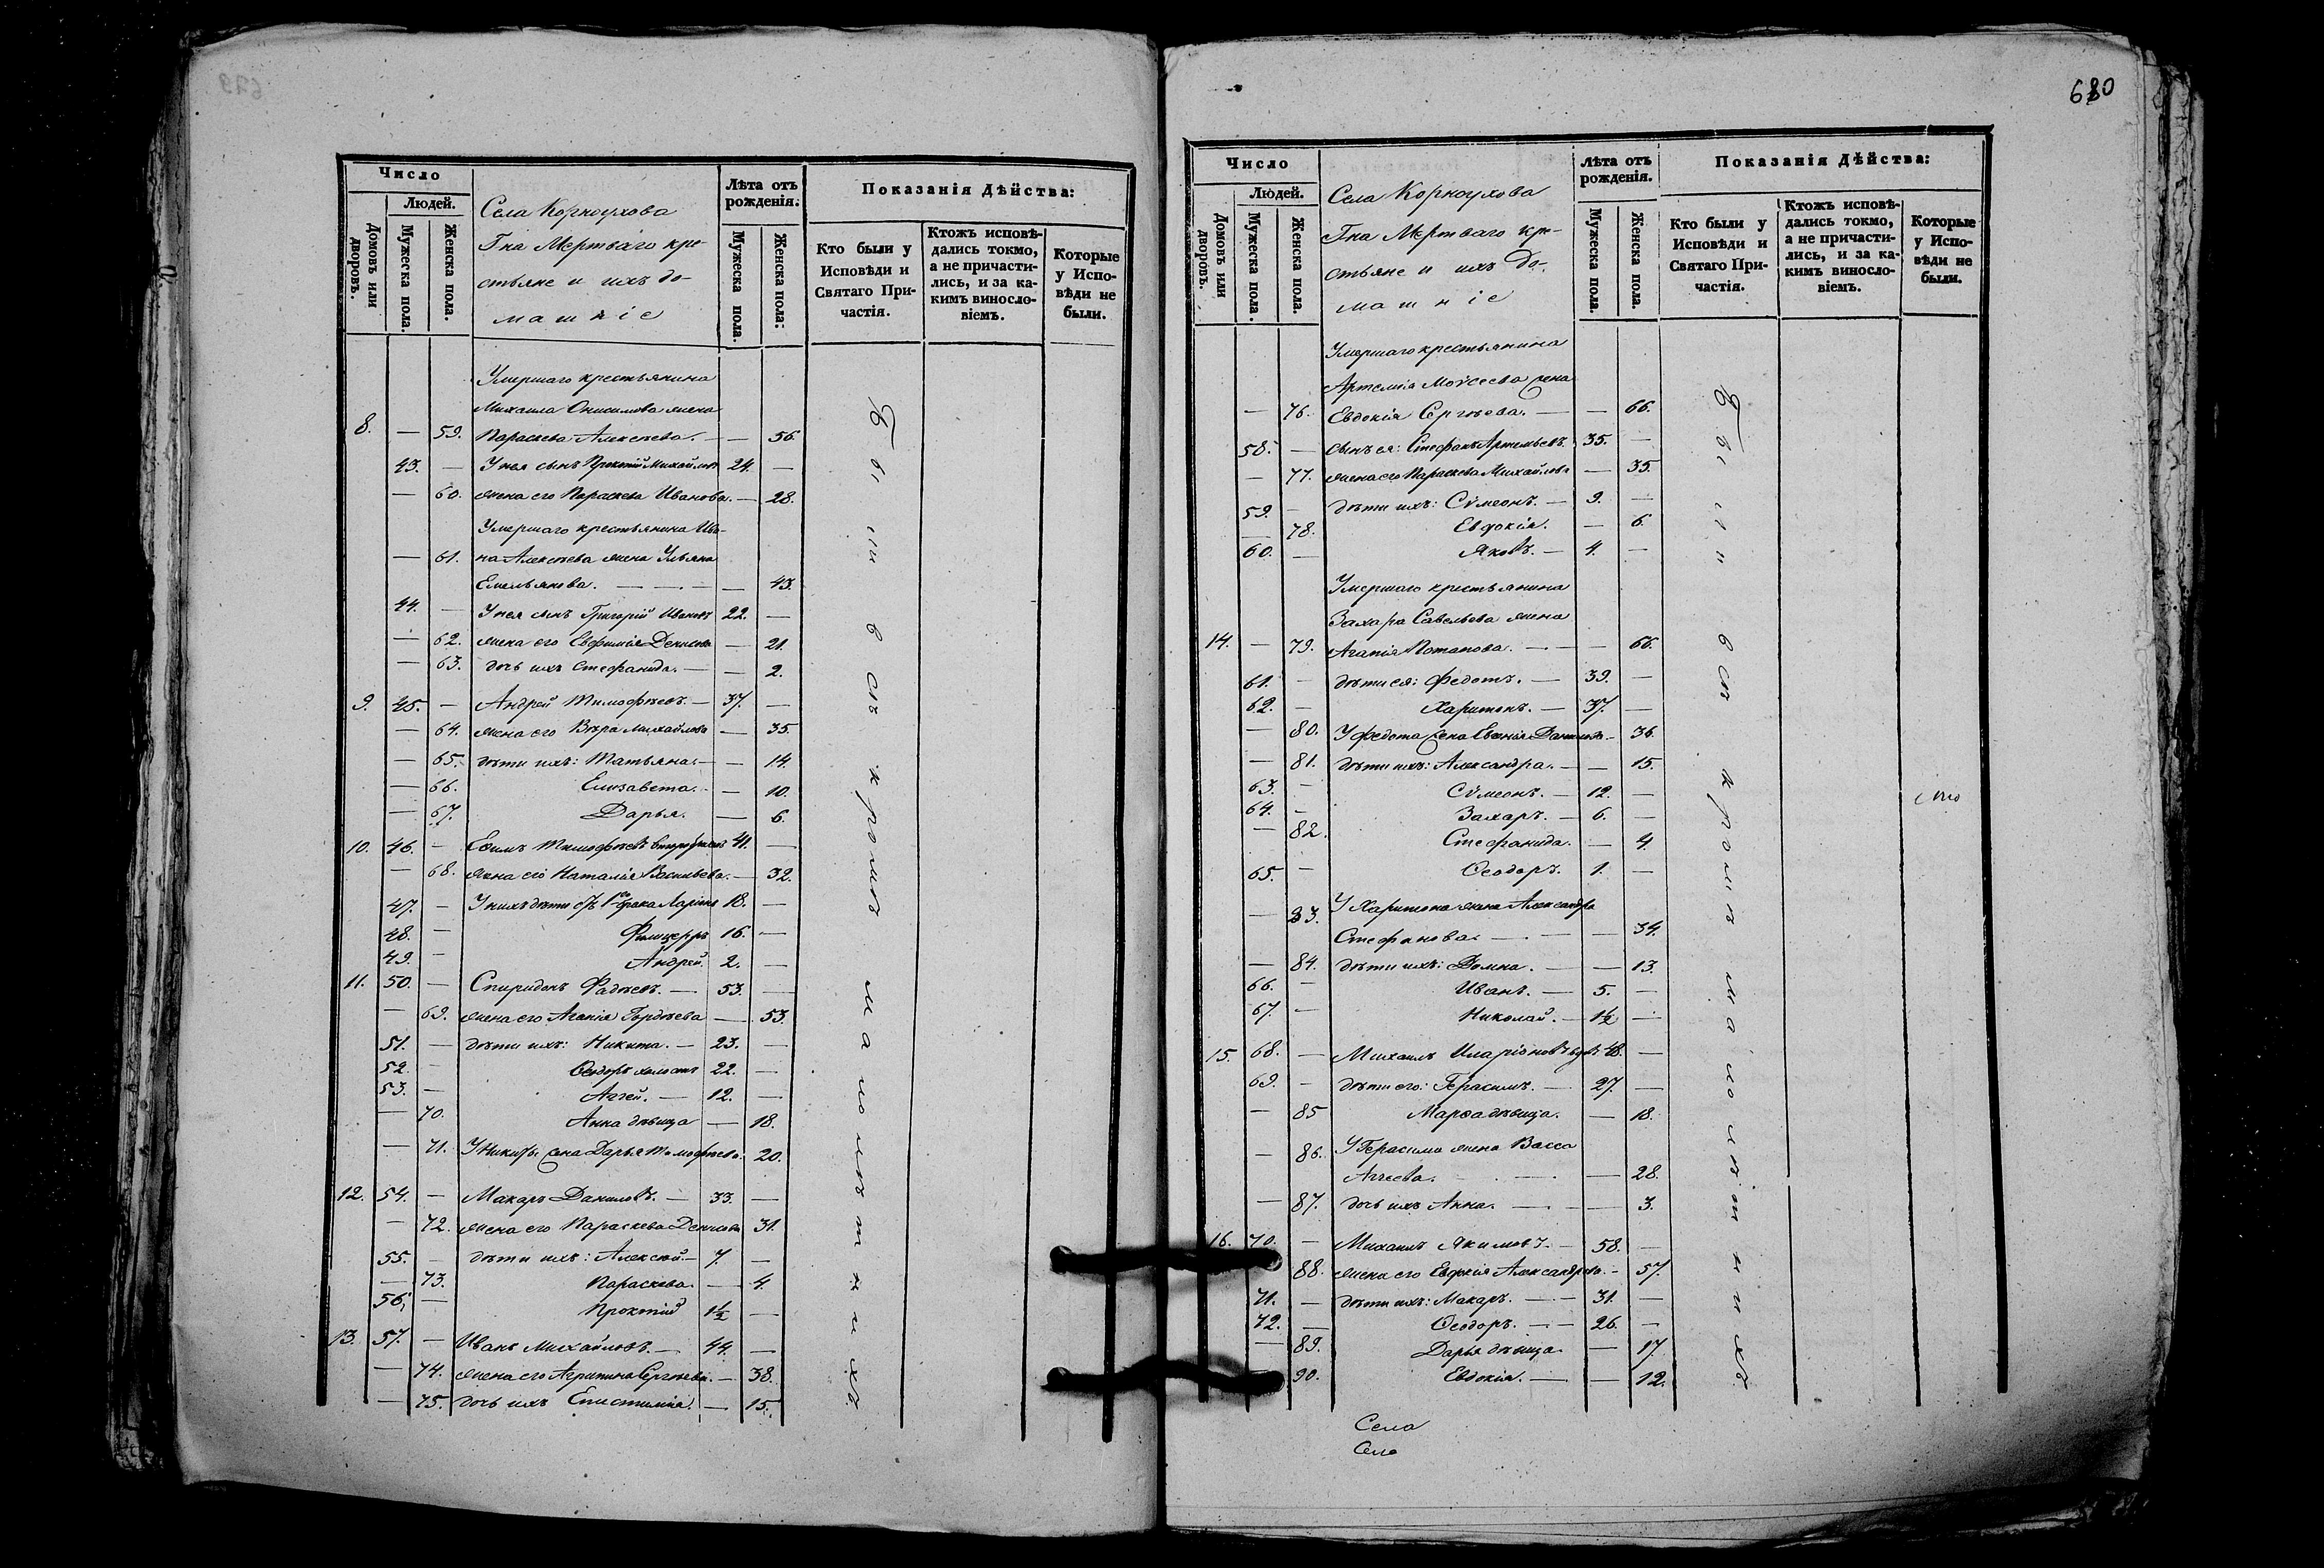 679
Число
Людей.
Домовъ или дворовъ.
Мужеска пола.
Женска пола.
Села Корноухова
Гна Мертваго кре-
стьяне и ихъ до-
машніе
Лѣта отъ рожденія.
Мужеска пола.
Женска пола.
Показанія Дѣйства:
Кто были у Исповѣди и Святаго Причастія.
Ктожъ исповѣдались токмо, а не причастились, и за какимъ винословіемъ.
Которые у Исповѣди не были.
Умершаго крестьянина
Михаила Онисимова жена
8. — 59. Параскева Алексѣева. — — 56.
43. — У нея сынъ Прокопій Михайловъ 24. —
— 60. жена его Параскева Иванова. — 28.
Умершаго крестьянина Ива-
— 61. на Алексѣева жена Ульяна
Емельянова. — — — 43.
44. — У нея сынъ Григорій Ивановъ 22. —
— 62. жена его Евфимія Денисова — 21.
— 63. дочь ихъ Стефанида. — — 2.
9. 45. — Андрей Тимофѣевъ. — 37. —
— 64. жена его Вѣра Михайлова — 35.
— 65. дѣти ихъ: Татьяна. — — 14.
— 66. Елизавета. — — 10.
— 67. Дарья. — 6.
10. 46. — Ефимъ Тимофѣевъ 41. —
— 68. жена его Наталія Васильева. — 32.
47. — У нихъ дѣти отъ 1го брака Ларіонъ 18. —
48. — 16. —
49. — Андрей. 2. —
11. 50. — Спиридонъ Фадѣевъ. — 53. —
— 69. жена его Агапія Гордѣева — 53.
51. — дѣти ихъ: Никита. — 23. —
52. — Ѳеодоръ холостъ 22. —
53. — Аггей. — 12. —
— 70. Анна дѣвица — 18.
— 71. У Никиты жена Дарья Тимофѣева. 20.
12. 54. — Макаръ Даниловъ. — 33. —
— 72. жена его Параскева Денисова 31.
55. — дѣти ихъ: Алексѣй. — 7. —
— 73. Параскева. — 4.
56. — Прокопій 1½ —
13. 57. — Иванъ Михайловъ. — 44. —
— 74. жена его Агрипина Сергѣева. — 38.
— 75. дочь ихъ Епистимія. — 15.
Бы ли всѣ кромѣ малолѣтнихъ.
680
Число
Людей.
Домовъ или дворовъ.
Мужеска пола.
Женска пола.
Села Корноухова
Гна Мертваго кре-
стьяне и ихъ до-
машніе
Лѣта отъ рожденія.
Мужеска пола.
Женска пола.
Показанія Дѣйства:
Кто были у Исповѣди и Святаго Причастія.
Ктожъ исповѣдались токмо, а не причастились, и за какимъ винословіемъ.
Которые у Исповѣди не были.
Умершаго крестьянина
Артемія Моѵсеева жена
— 76. Евдокія Сергѣева. — — 66.
58. — сынъ ея: Стефанъ Артемьевъ. 35. —
— 77. жена его Параскева Михайлова — 35.
59. — дѣти ихъ: Сѵмеонъ. — 9. —
— 78. Евдокія. — 6.
60. — Яковъ. — 4. —
Умершаго крестьянина
Захара Савельева жена
14. — 79. Агапія Потапова. — — 66.
61. — дѣти ея: Федотъ. — 39. —
62. — Харитонъ. — 37. —
— 80. У Федота жена Евгенія Данилова — 36.
— 81. дѣти ихъ: Александра. — — 15.
63. — Сѵмеонъ. — 12. —
64. — Захаръ. — 6. —
— 82. Стефанида. — 4.
65. — Ѳеодоръ. 1. —
— 83. У Харитона жена Александра
Стефанова. — — — 34.
— 84. дѣти ихъ: Домна. — — 13.
66. — Иванъ. — 5. —
67. — Николай. — 1½ —
15. 68. — Михаилъ Иларіоновъ вдовъ 48. —
69. — дѣти его: Герасимъ. — 27. —
— 85 Марѳа дѣвица. — 18.
— 86. У Герасима жена Васса
Аггеева. — — 28.
— 87. дочь ихъ Анна. — — 3.
16. 70. — Михаилъ Якимовъ. — 58. —
88. жена его Евдокія Александрова. — 57.
71. — дѣти ихъ: Макаръ. — 31. —
72. — Ѳеодоръ. — 26. —
— 89. Дарья дѣвица — 17.
— 90. Евдокія. — — 12.
Бы ли всѣ кромѣ малолѣтнихъ
Села
Село